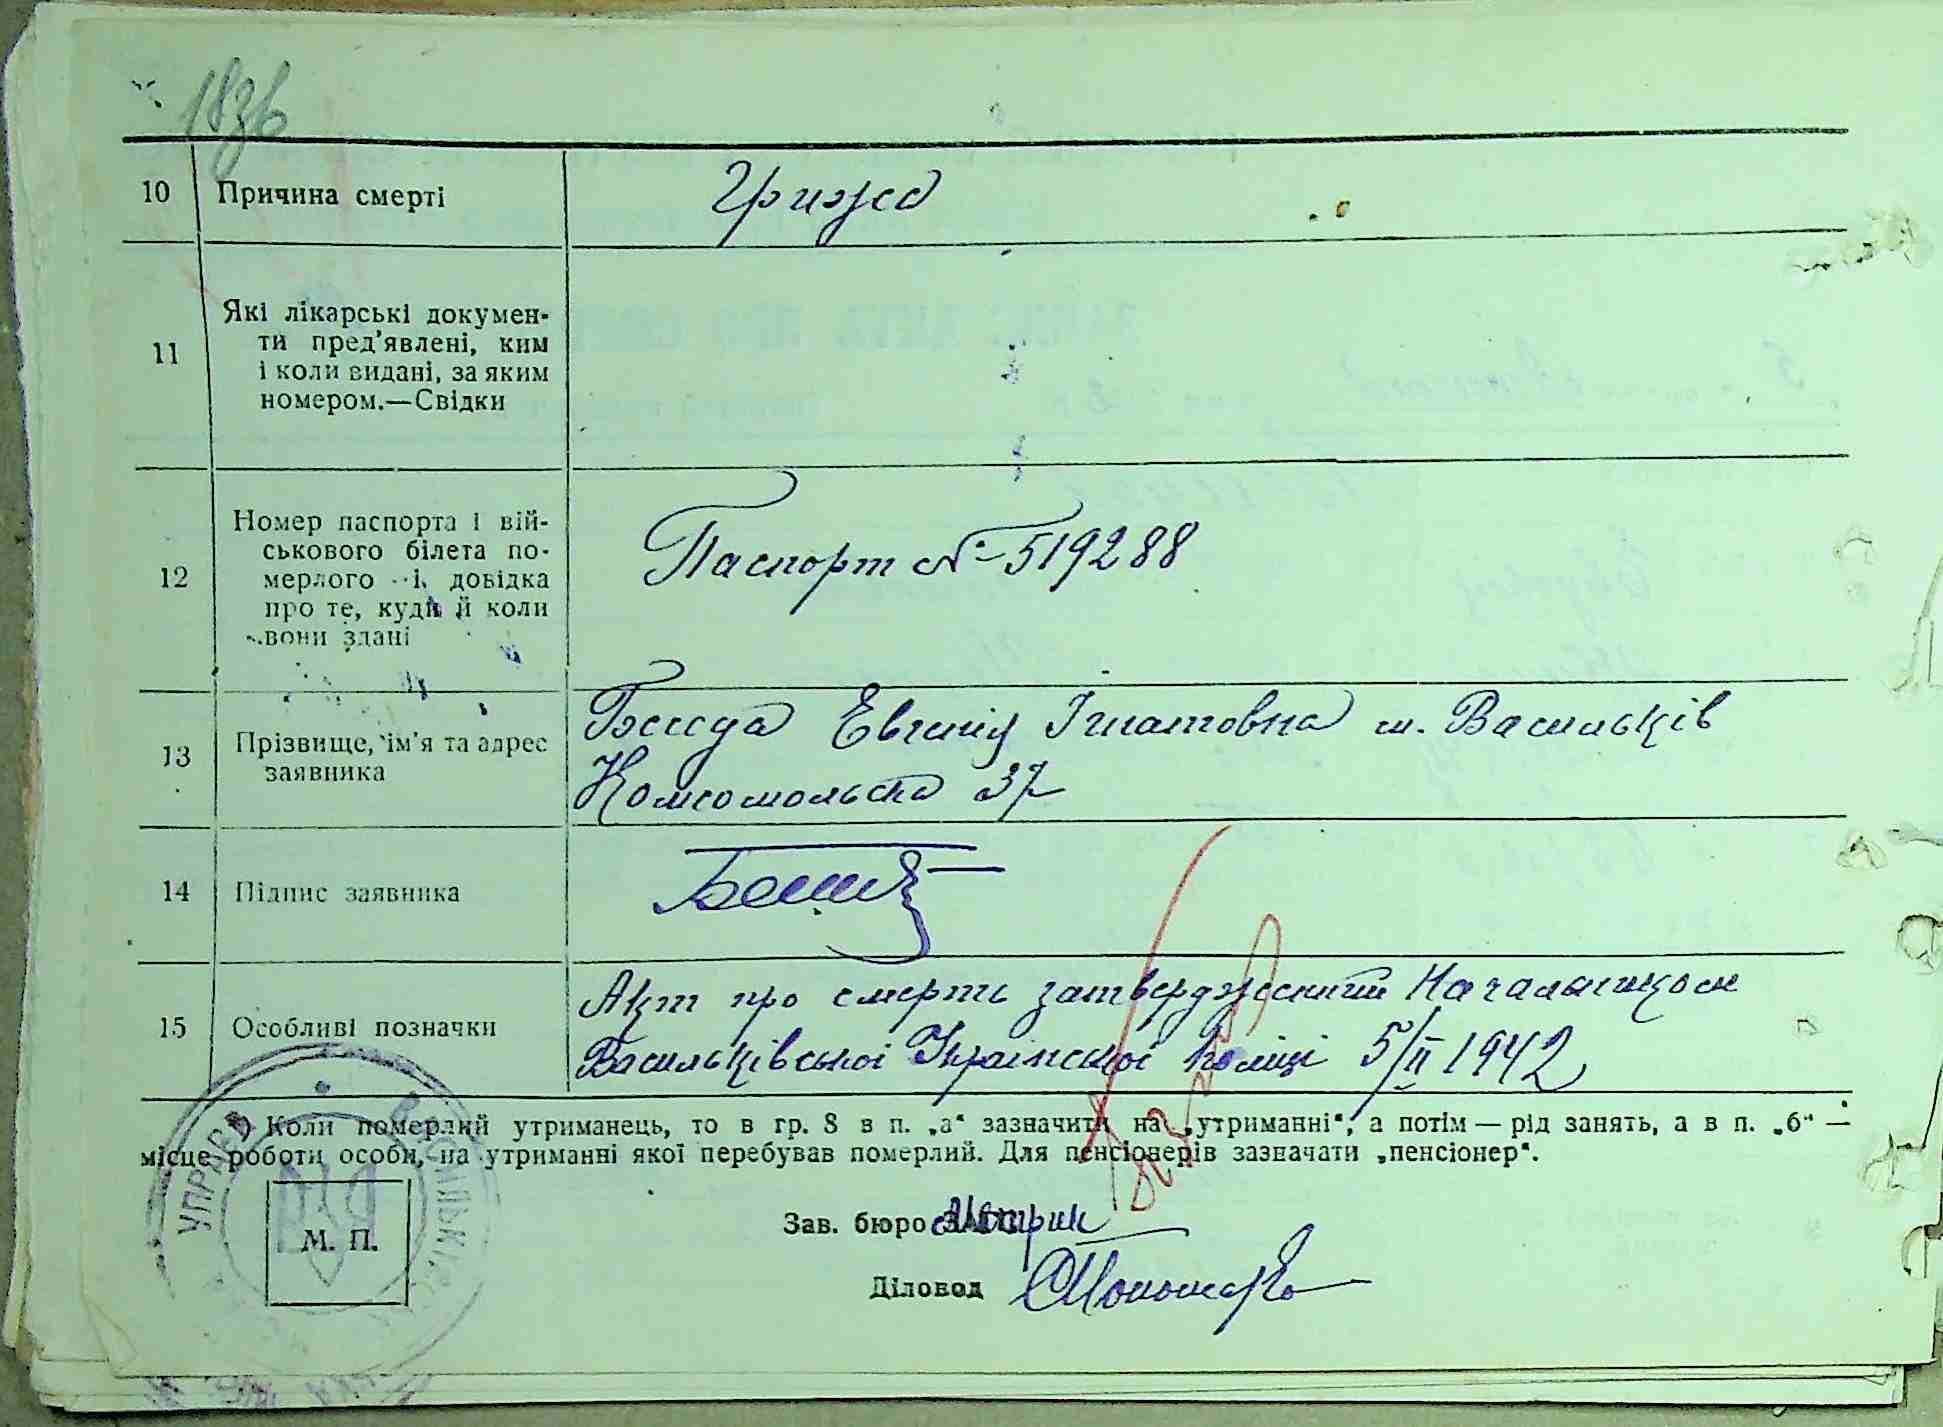 183б
10 Причина смерті Грижа
11 Які лікарські докумен-
ти пред'явлені, ким
і коли видані, за яким
номером.—Свідки
12 Номер паспорта і вій-
ськового білета по-
мерлого і довідка
про те, куди й коли
вони здані
Паспорт № 519288
13 Прізвище, ім'я та адрес
заявника
Бесида Евгинія Ігнатовна м. Васильків
Комсомольска 37
14 Підпис заявника
15 Особливі позначки
Акт про смерть затверджений Начальником
Васильківської Украінскої поліції 5/II 1942
¹) Коли померлий утриманець, то в гр. 8 в п. „а“ зазначити на „утриманні“, а потім — рід занять, а в п. „б“ —
місце роботи особи, на утриманні якої перебував померлий. Для пенсіонерів зазначати „пенсіонер“.
Зав. бюро ЗАГС
Діловод
М. П.
УПРАВА